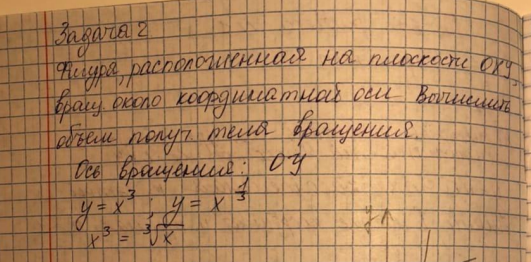 Задача 2
Фигура, расположенная на плоскости OXY,
вращ. около координатной оси Вычислить
объем получ тела вращения.
Ось вращения: OY
y = x³ ; y = x^{1/3}
x³ = ∛x
y